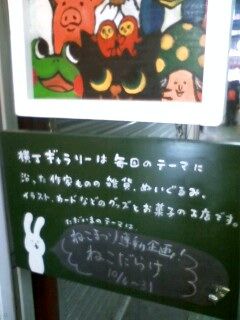 横丁ギャラリーは毎回のテーマに
沿った作家ものの雑貨、ぬいぐるみ、
イラスト、カードなどのグッズとお菓子のお店です。
ただいまのテーマは、
ねこまつり連動企画!
ねこだらけ
10/6〜